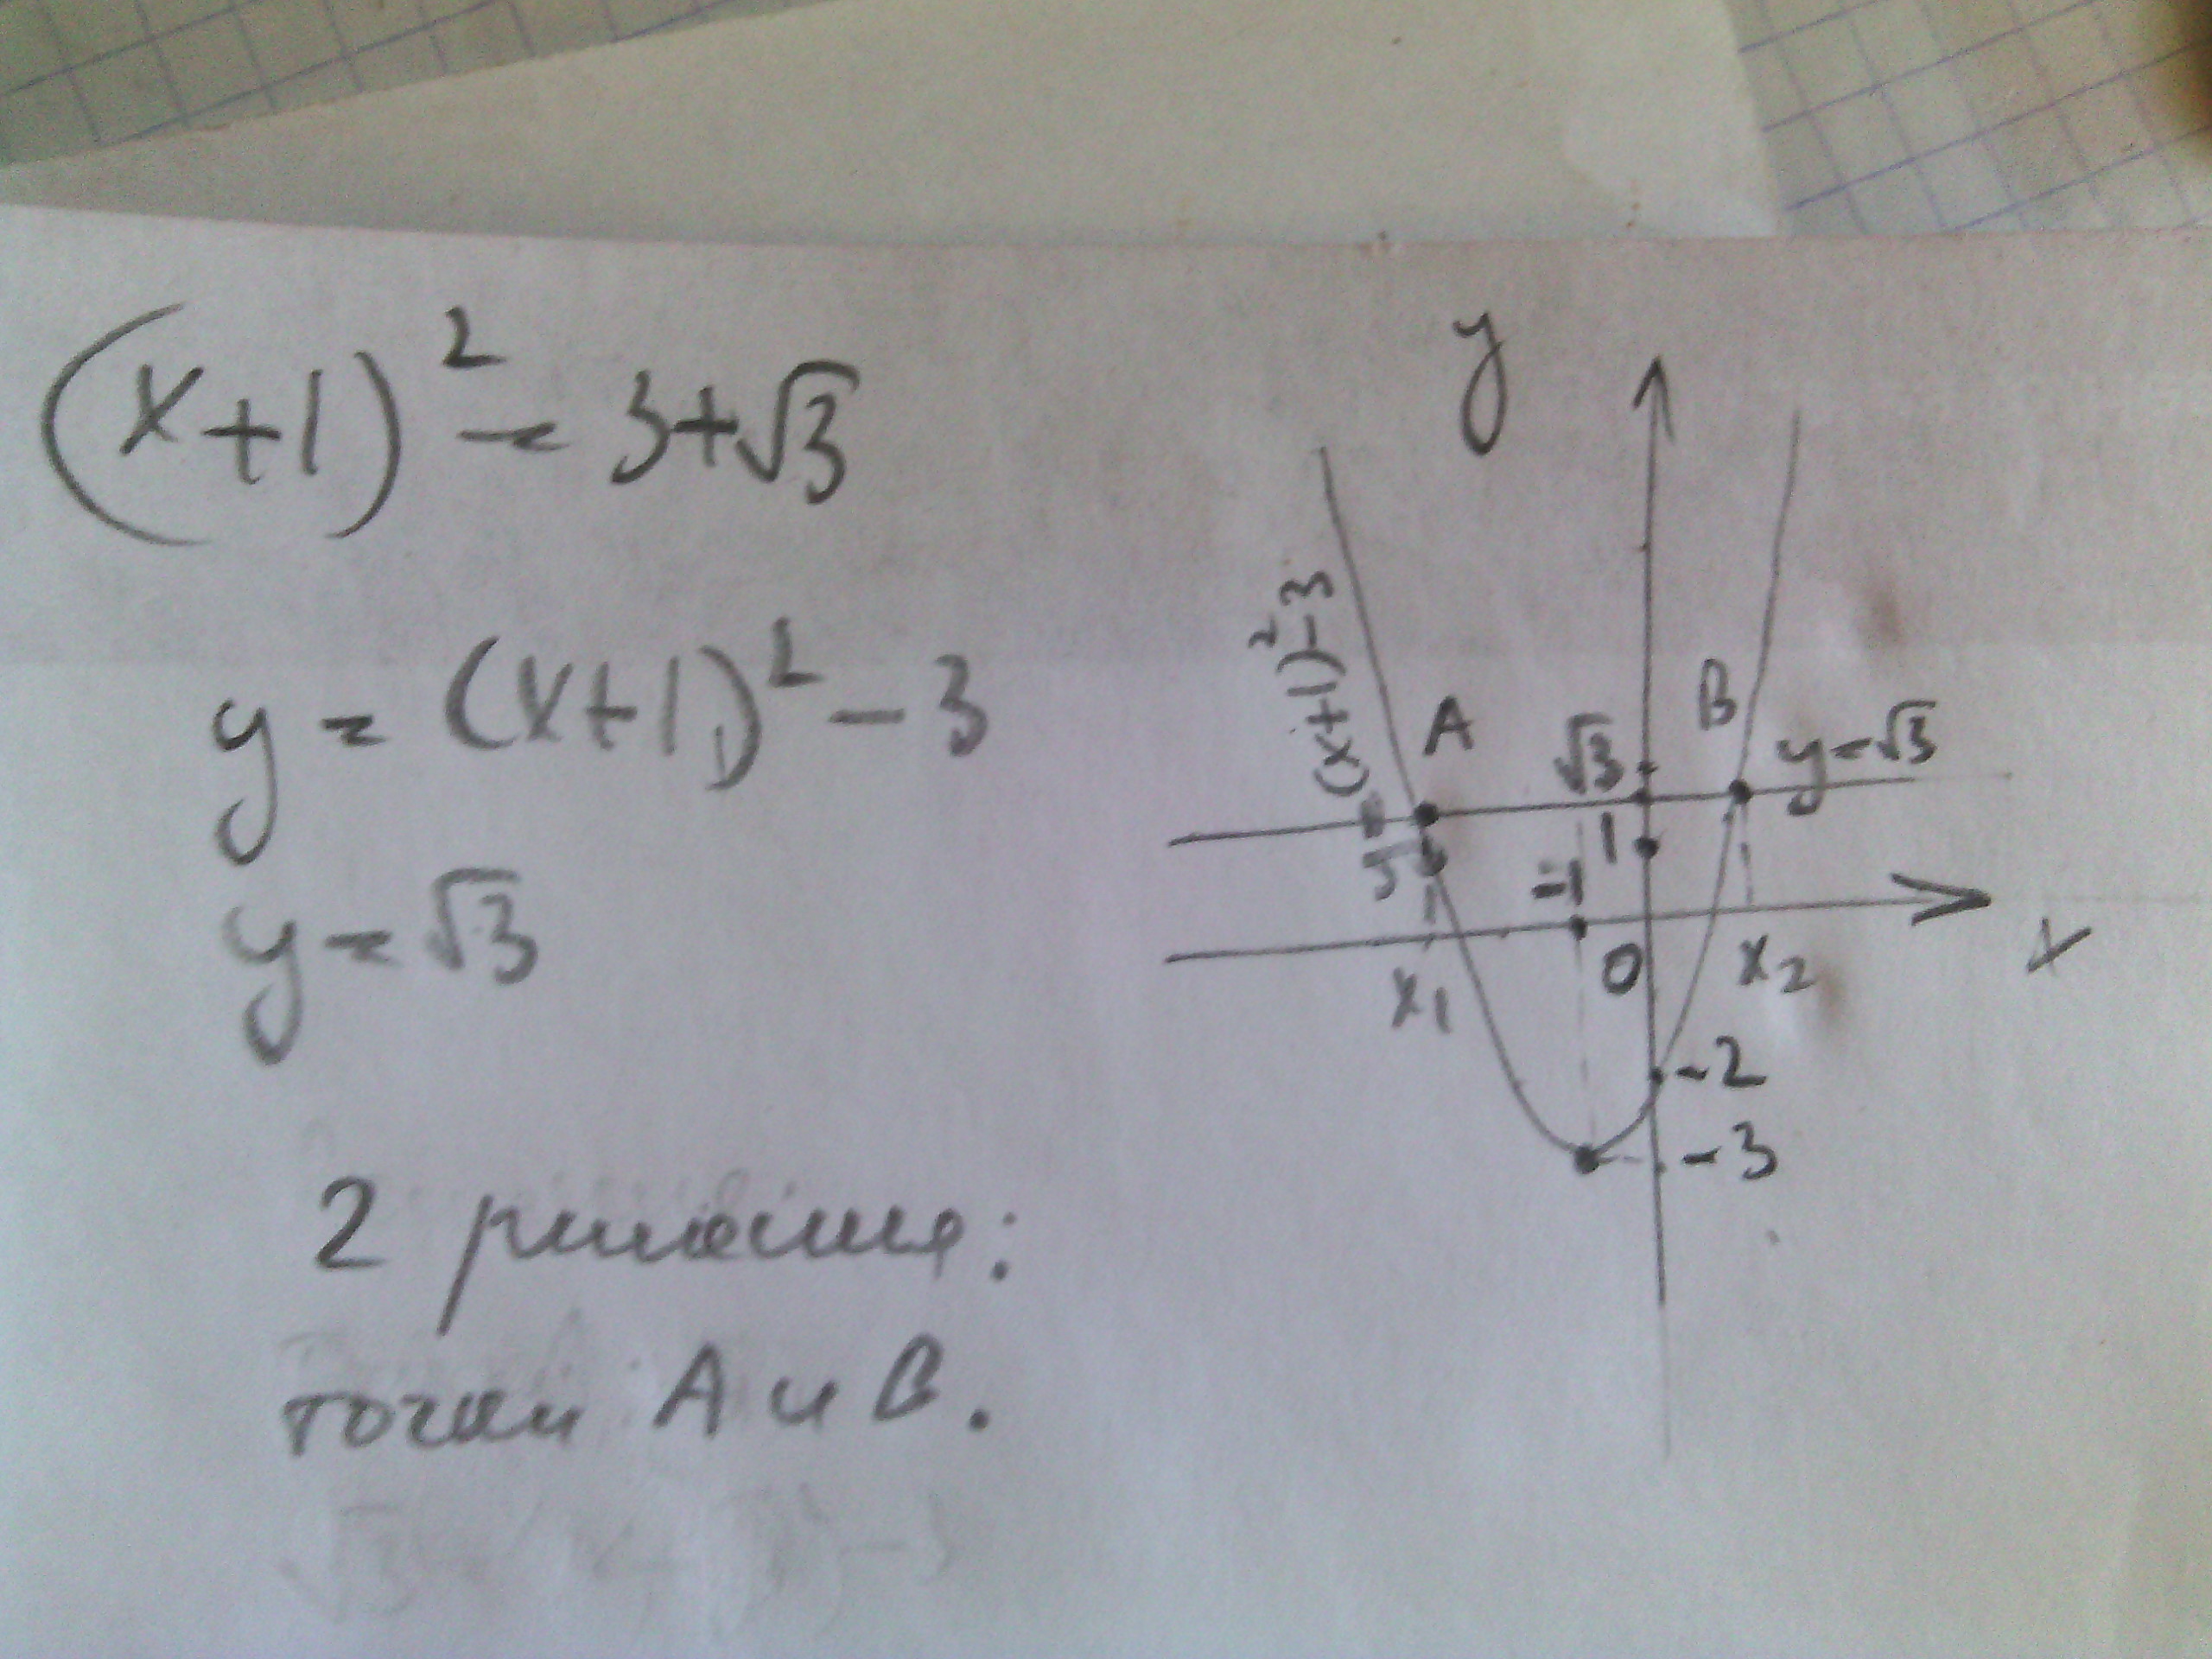 (x+1)² = 3+√3
y = (x+1)² - 3
y = √3
2 решения:
точки A и B.
y
y = (x+1)² - 3
A
B
√3
y = √3
1
-1
0
x₁
x₂
x
-2
-3